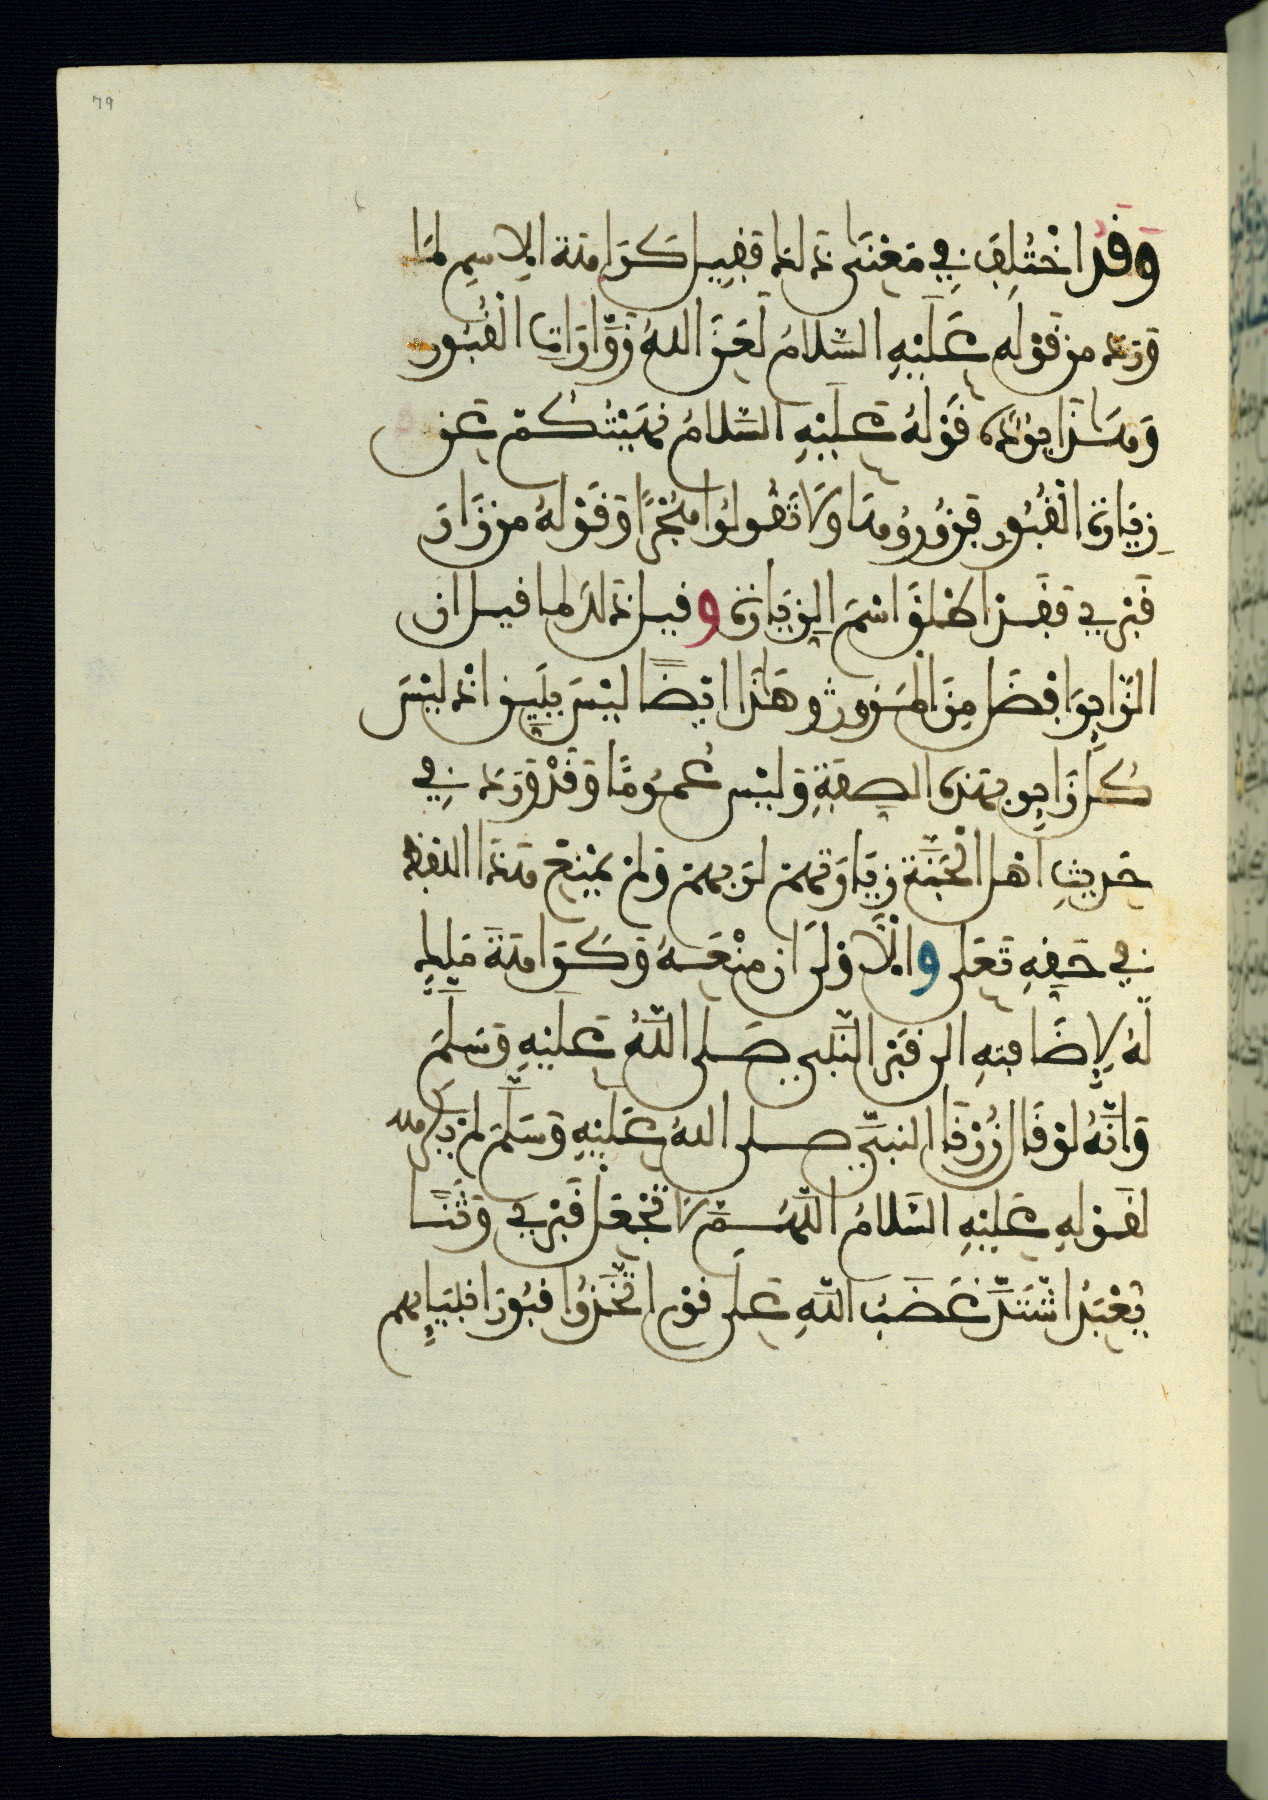 79
وَقَدُ اخْتُلِفَ فِي مَعْنَى ذلك فقيل كَرَاهة الاسم لما
وَرد من قَوْله عَلَيْهِ السَّلامُ لَعَنَ اللهُ زَوَّارَات الْقُبُور
وَهَذَا يرده قَوْلُهُ عَلَيْهِ السَّلامُ نَهَيْتُكُمْ عَن
زِيَارة الْقُبُور فزُورُوهَا وَلَا تَقُولُوا هُجْرًا وَقَوْلهُ من زَارَ
قَبْرِي فَقَد اطْلَقَ اسْمَ الزيَارة وقيل ذلك لما قيل ان
الزّايِرَ افْضَل مِنَ الْمَزور وهَذَا ايْضًا لَيْسَ بِشَيءٍ اذ لَيْسَ
كُل زَايِر بِهَذه الصفَةِ وَلَيْس عُمُومًا وَقَدْ وَرَد فِي
حَديثِ اهْل الْجَنَّة زيَارَتهم لرَبهمْ وَلَمْ يمْنع هذا اللفظ
في حَقِهِ تَعَلى والاوْلَى ان منْعَهُ وَكَرَاهَةَ مَالِك
لَهُ لِاضَافتِهِ الى قَبْر النَّبي صَلى اللَّهُ عَلَيْهِ وَسَلَّمَ
وَانَّهُ لَوْ قَال زُرْنَا النبيّ صلى اللهُ عَلَيْهِ وَسَلَّمَ لم يكرهه
لقَوْلهِ عَلَيْهِ السَّلامُ اللَّهُمَّ لَا تَجْعَل قَبْرِي وَثَنًا
يُعْبَدُ اشْتَدَّ غَضَبُ اللَّهِ عَلَى قوْم اتَّخَذُوا قبُورَ انبيَايِهم